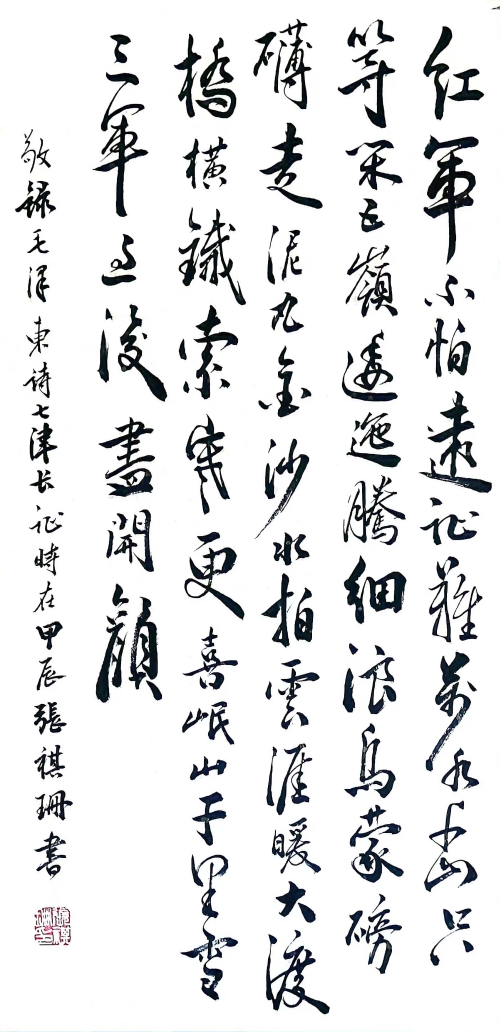 紅軍不怕遠征難萬水千山只
等閑五嶺逶迤騰細浪烏蒙磅
礴走泥丸金沙水拍雲涯暖大渡
橋橫鐵索寒更喜岷山千里雪
三軍過後盡開顏
敬錄毛澤東詩七律長征時在甲辰張祺珊書